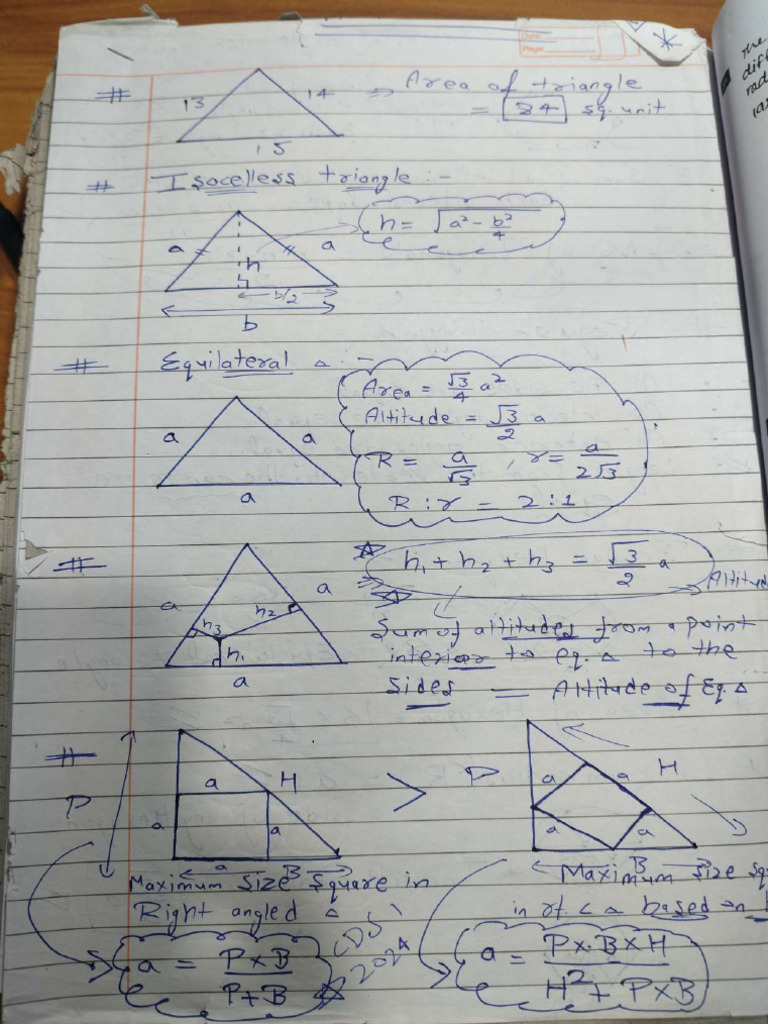 Date
Page
*
#
13
14
15
⇒ Area of triangle
= 84 sq. unit
# Isocelless triangle :-
a
a
h
b/2
b
h = √(a² - b²/4)
# Equilateral △ :-
a
a
a
Area = √3/4 a²
Altitude = √3/2 a
R = a/√3 , r = a/2√3
R : r = 2 : 1
#
a
a
h3
h2
h1
a
h1 + h2 + h3 = √3/2 a
Altitud
Sum of altitudes from a point
interior to eq. △ to the
sides = Altitude of Eq △
#
P
a
H
a
a
a
B
>
P
H
a
a
a
a
B
Maximum size square in
Right angled △
a = P×B/P+B
CDS 1
2024
Maximum size Squ
in rt. < △ based on
a = P×B×H/H² + P×B
the
diff
rad